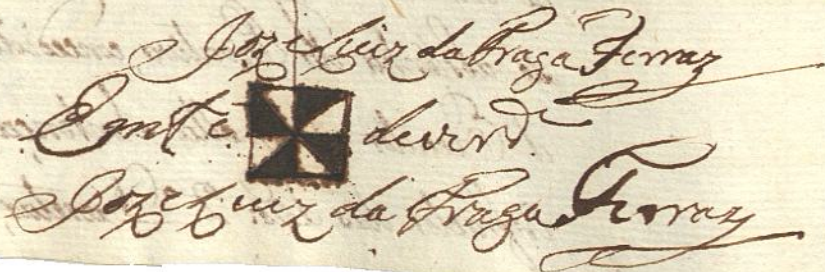 Joze Luiz da Fraga Ferraz
Em te de verd.e
Joze Luiz da Fraga Ferraz